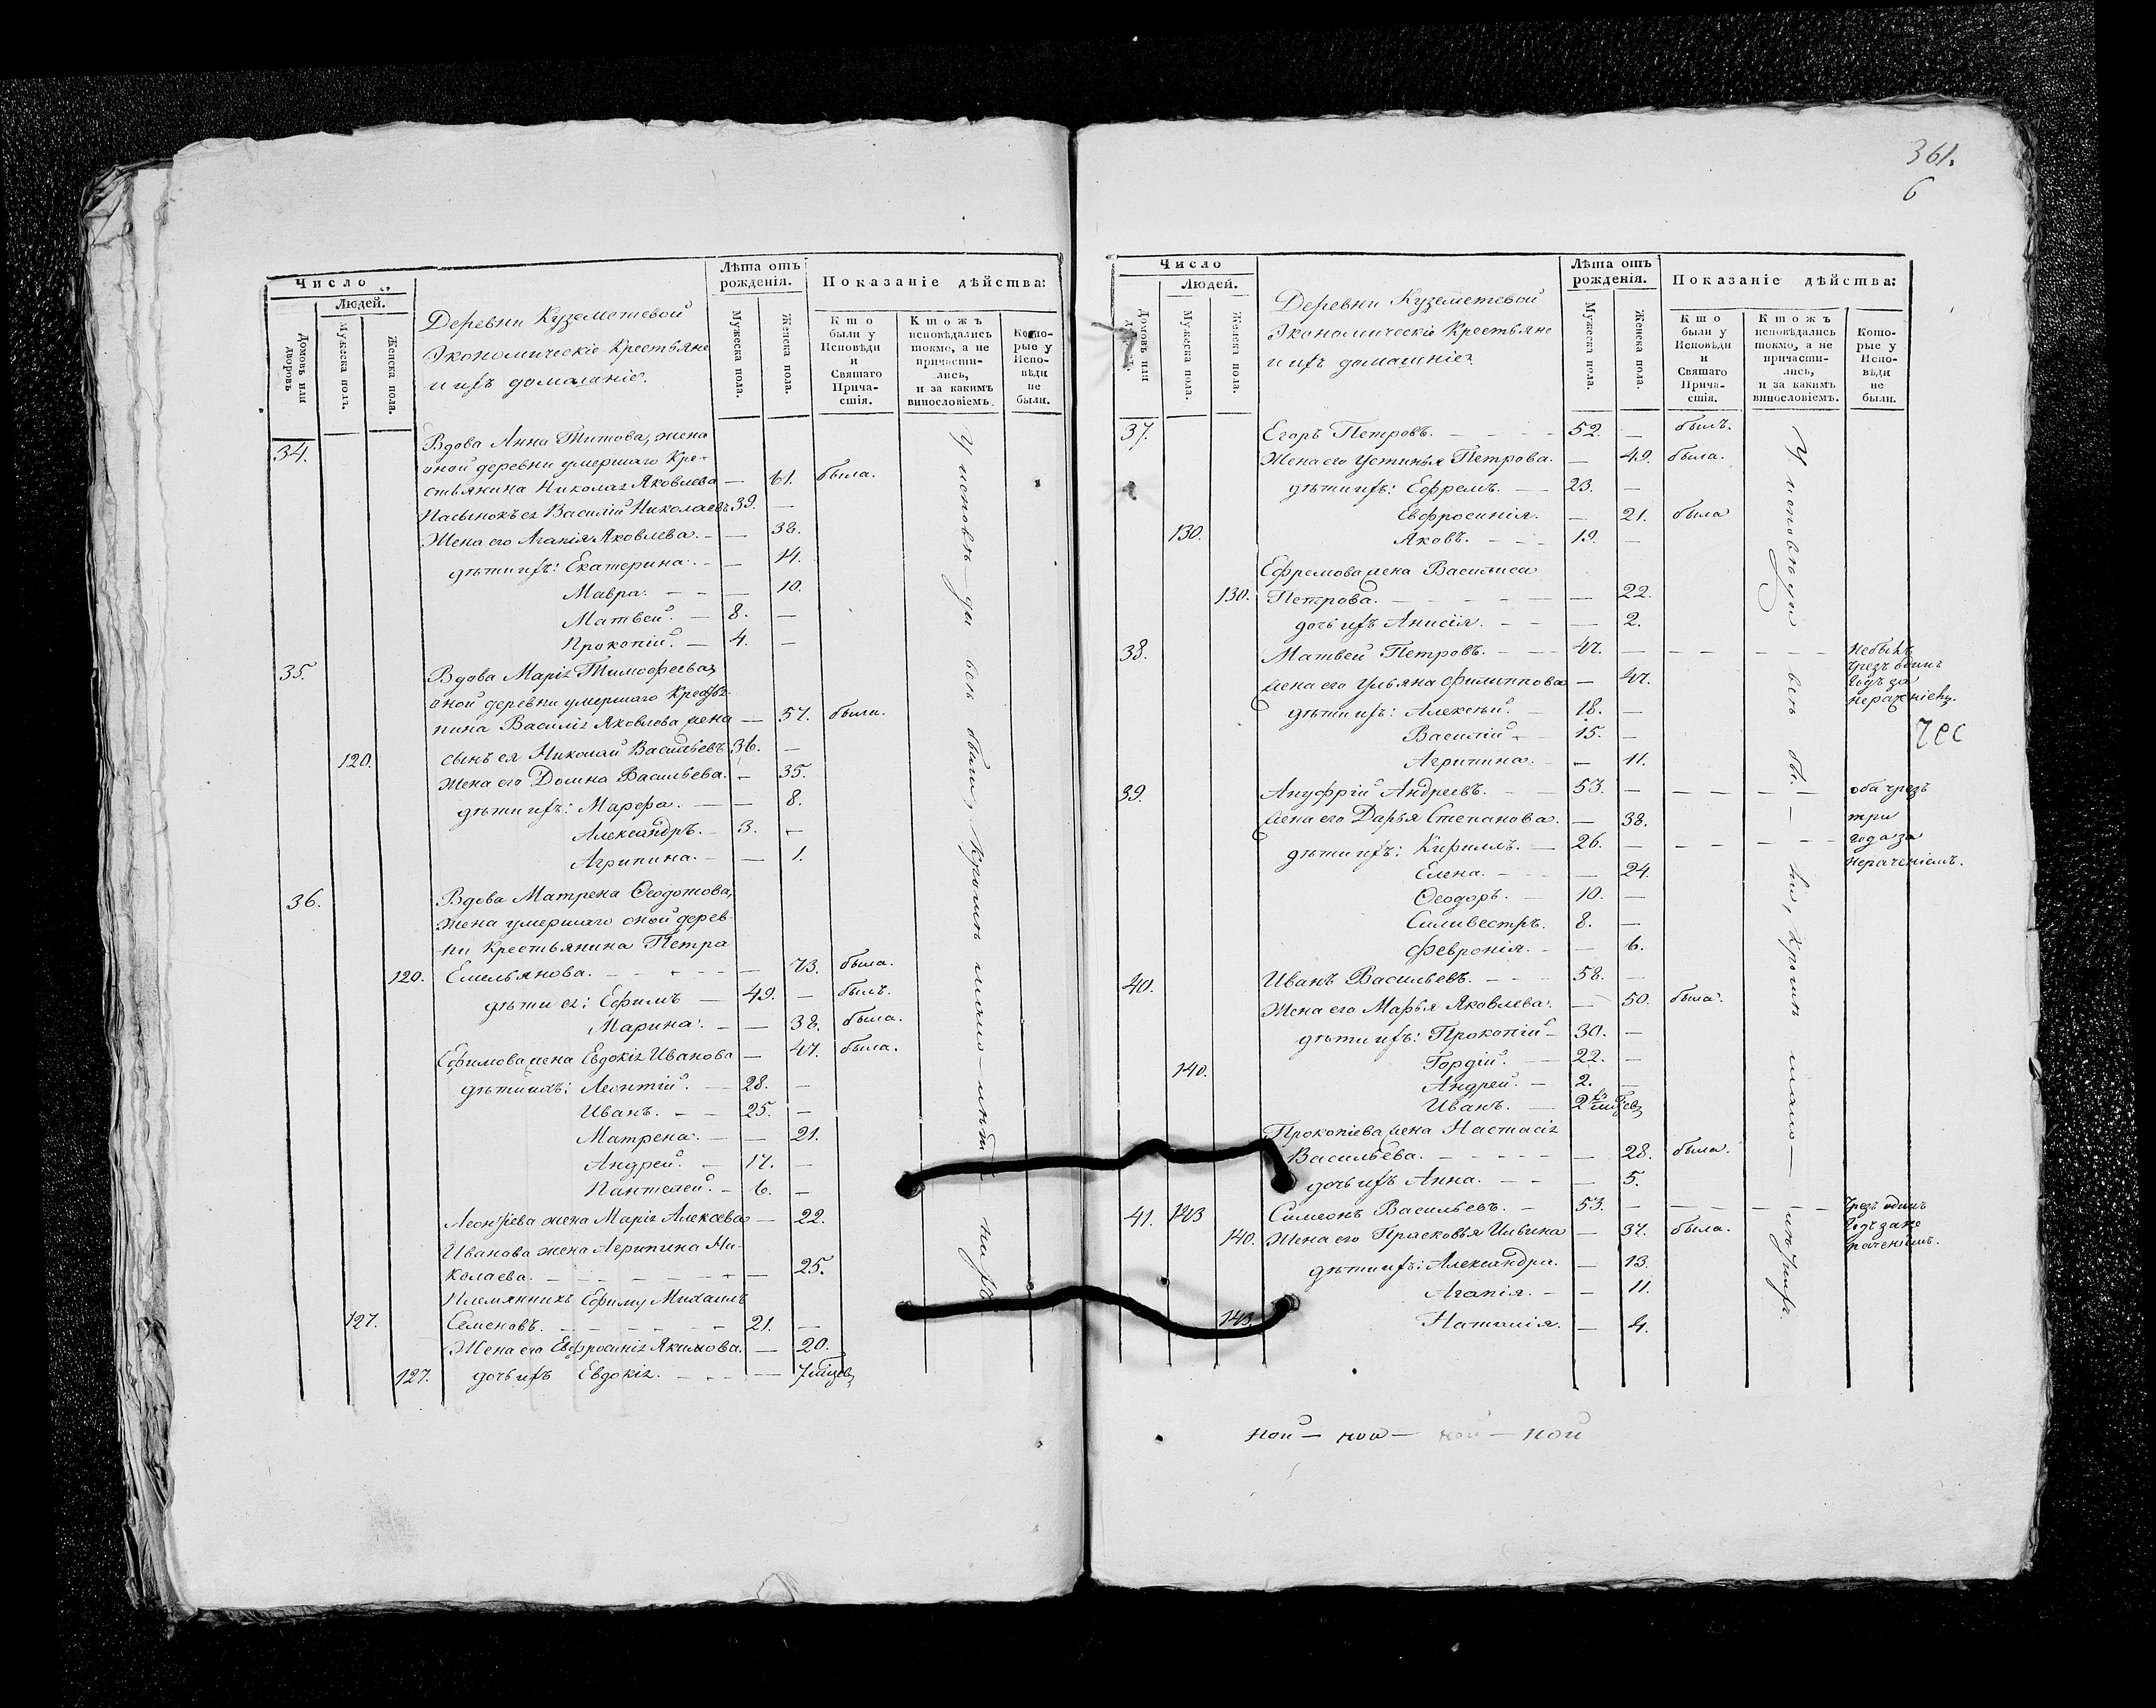 Число
Людей.
Домовъ или дворовъ
Мужеска пола.
Женска пола.
Деревни Куземетевой
Экономическіе Крестьяне
и ихъ домашніе.
Лѣта отъ рожденія.
Мужеска пола.
Женска пола.
Показаніе дѣйства:
Кто были у Исповѣди и Святаго Прича-стія.
Ктожъ исповѣдались токмо, а не причасти-лись, и за какимъ винословіемъ.
Кото-рые у Испо-вѣди не были.
34. Вдова Анна Титова, жена
оной деревни умершаго Кре-
стьянина Николая Яковлева — 61. была.
Пасынокъ ея Василій Николаевъ 39. —
Жена его Агапія Яковлева. — — 38.
дѣти ихъ: Екатерина. — — 14.
Мавра. — — — 10.
Матвей. — 8. —
Прокопій. — 4. —
35. Вдова Марія Тимофеева,
оной деревни умершаго Крестья-
нина Василія Яковлева жена — 57. была.
120. сынъ ея Николай Васильевъ 36. —
Жена его Домна Васильева. — 35.
дѣти ихъ: Марфа. — — 8.
Александръ. — 3. —
Агрипина. — — 1.
36. Вдова Матрена Ѳеодотова,
жена умершаго оной дерев-
ни Крестьянина Петра
120. Емельянова. — — — — — 73. была.
дѣти ея: Ефимъ — 49. — былъ.
Марина. — — 38. была.
Ефимова жена Евдокія Иванова — 47. была.
дѣти ихъ: Леонтій. — 28. —
Иванъ. — — 25. —
Матрена. — — 21.
Андрей. — 17. —
Пантелей. — 6. —
Леонтіева жена Марія Алексеева — 22.
Иванова жена Агрипина Ни-
колаева. — — — — — — 25.
Племянникъ Ефиму Михаилъ
127. Семеновъ. — — — — — 21. —
Жена его Евфросинія Якимова. — 20.
127. дочь ихъ Евдокія. — — — — 7
были, кромѣ
361.
6
Число
Людей.
Домовъ или
Мужеска пола.
Женска пола.
Деревни Куземетевой
Экономическіе Крестьяне
и ихъ домашніе.
Лѣта отъ рожденія.
Мужеска пола.
Женска пола.
Показаніе дѣйства:
Кто были у Исповѣди и Святаго Прича-стія.
Ктожъ исповѣдались токмо, а не причасти-лись, и за какимъ винословіемъ.
Кото-рые у Испо-вѣди не были.
37. Егоръ Петровъ. — — — 52. — былъ.
Жена его Устинья Петрова. — 49. была.
дѣти ихъ: Ефремъ. — 23. —
Евфросинія. — 21. была
130. Яковъ. — — — 19. —
Ефремова жена Василиса
130. Петрова. — — — — — — 22.
дочь ихъ Анисія. — — — 2.
38. Матвей Петровъ. — — 47. — — — — — не былъ
чрезъ одинъ
жена его Ульяна Филиппова — 47. годъ за
нераченіемъ.
дѣти ихъ: Алексѣй. — 18. —
Василій — 15. —
чес
Агрипина. — — 11.
39. Ануфрій Андреевъ. — — 53. — — — — — оба чрезъ
жена его Дарья Степанова. — 38. три
дѣти ихъ: Кирилъ. — 26. — — — — — года за
нераченіемъ.
Елена. — — — 24.
Ѳеодоръ. — 10. —
Силивестръ. 8. —
Февронія. — — 6.
40. Иванъ Васильевъ. — — 58. —
Жена его Марья Яковлева. — 50. была.
дѣти ихъ: Прокопій — 30. —
140. Гордій. — 22. —
Андрей. — 2. —
Иванъ. — 2
Прокопіева жена Настасія
Васильева. — — — — — — 28. была.
дочь ихъ Анна. — — — 5.
41. 143 Симеонъ Васильевъ. — 53. — — — — — чрезъ одинъ
140. Жена его Прасковья Ильина — 37. была. годъ за не
раченіемъ.
дѣти ихъ: Александра. — 13.
Агапія. — — 11.
143. Наталія. — 4.
кромѣ
ной — ной — ной — ной